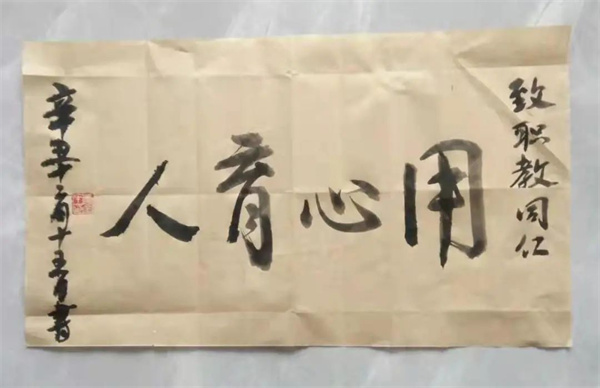 致职教同仁
用心育人
辛丑年二月十五日書